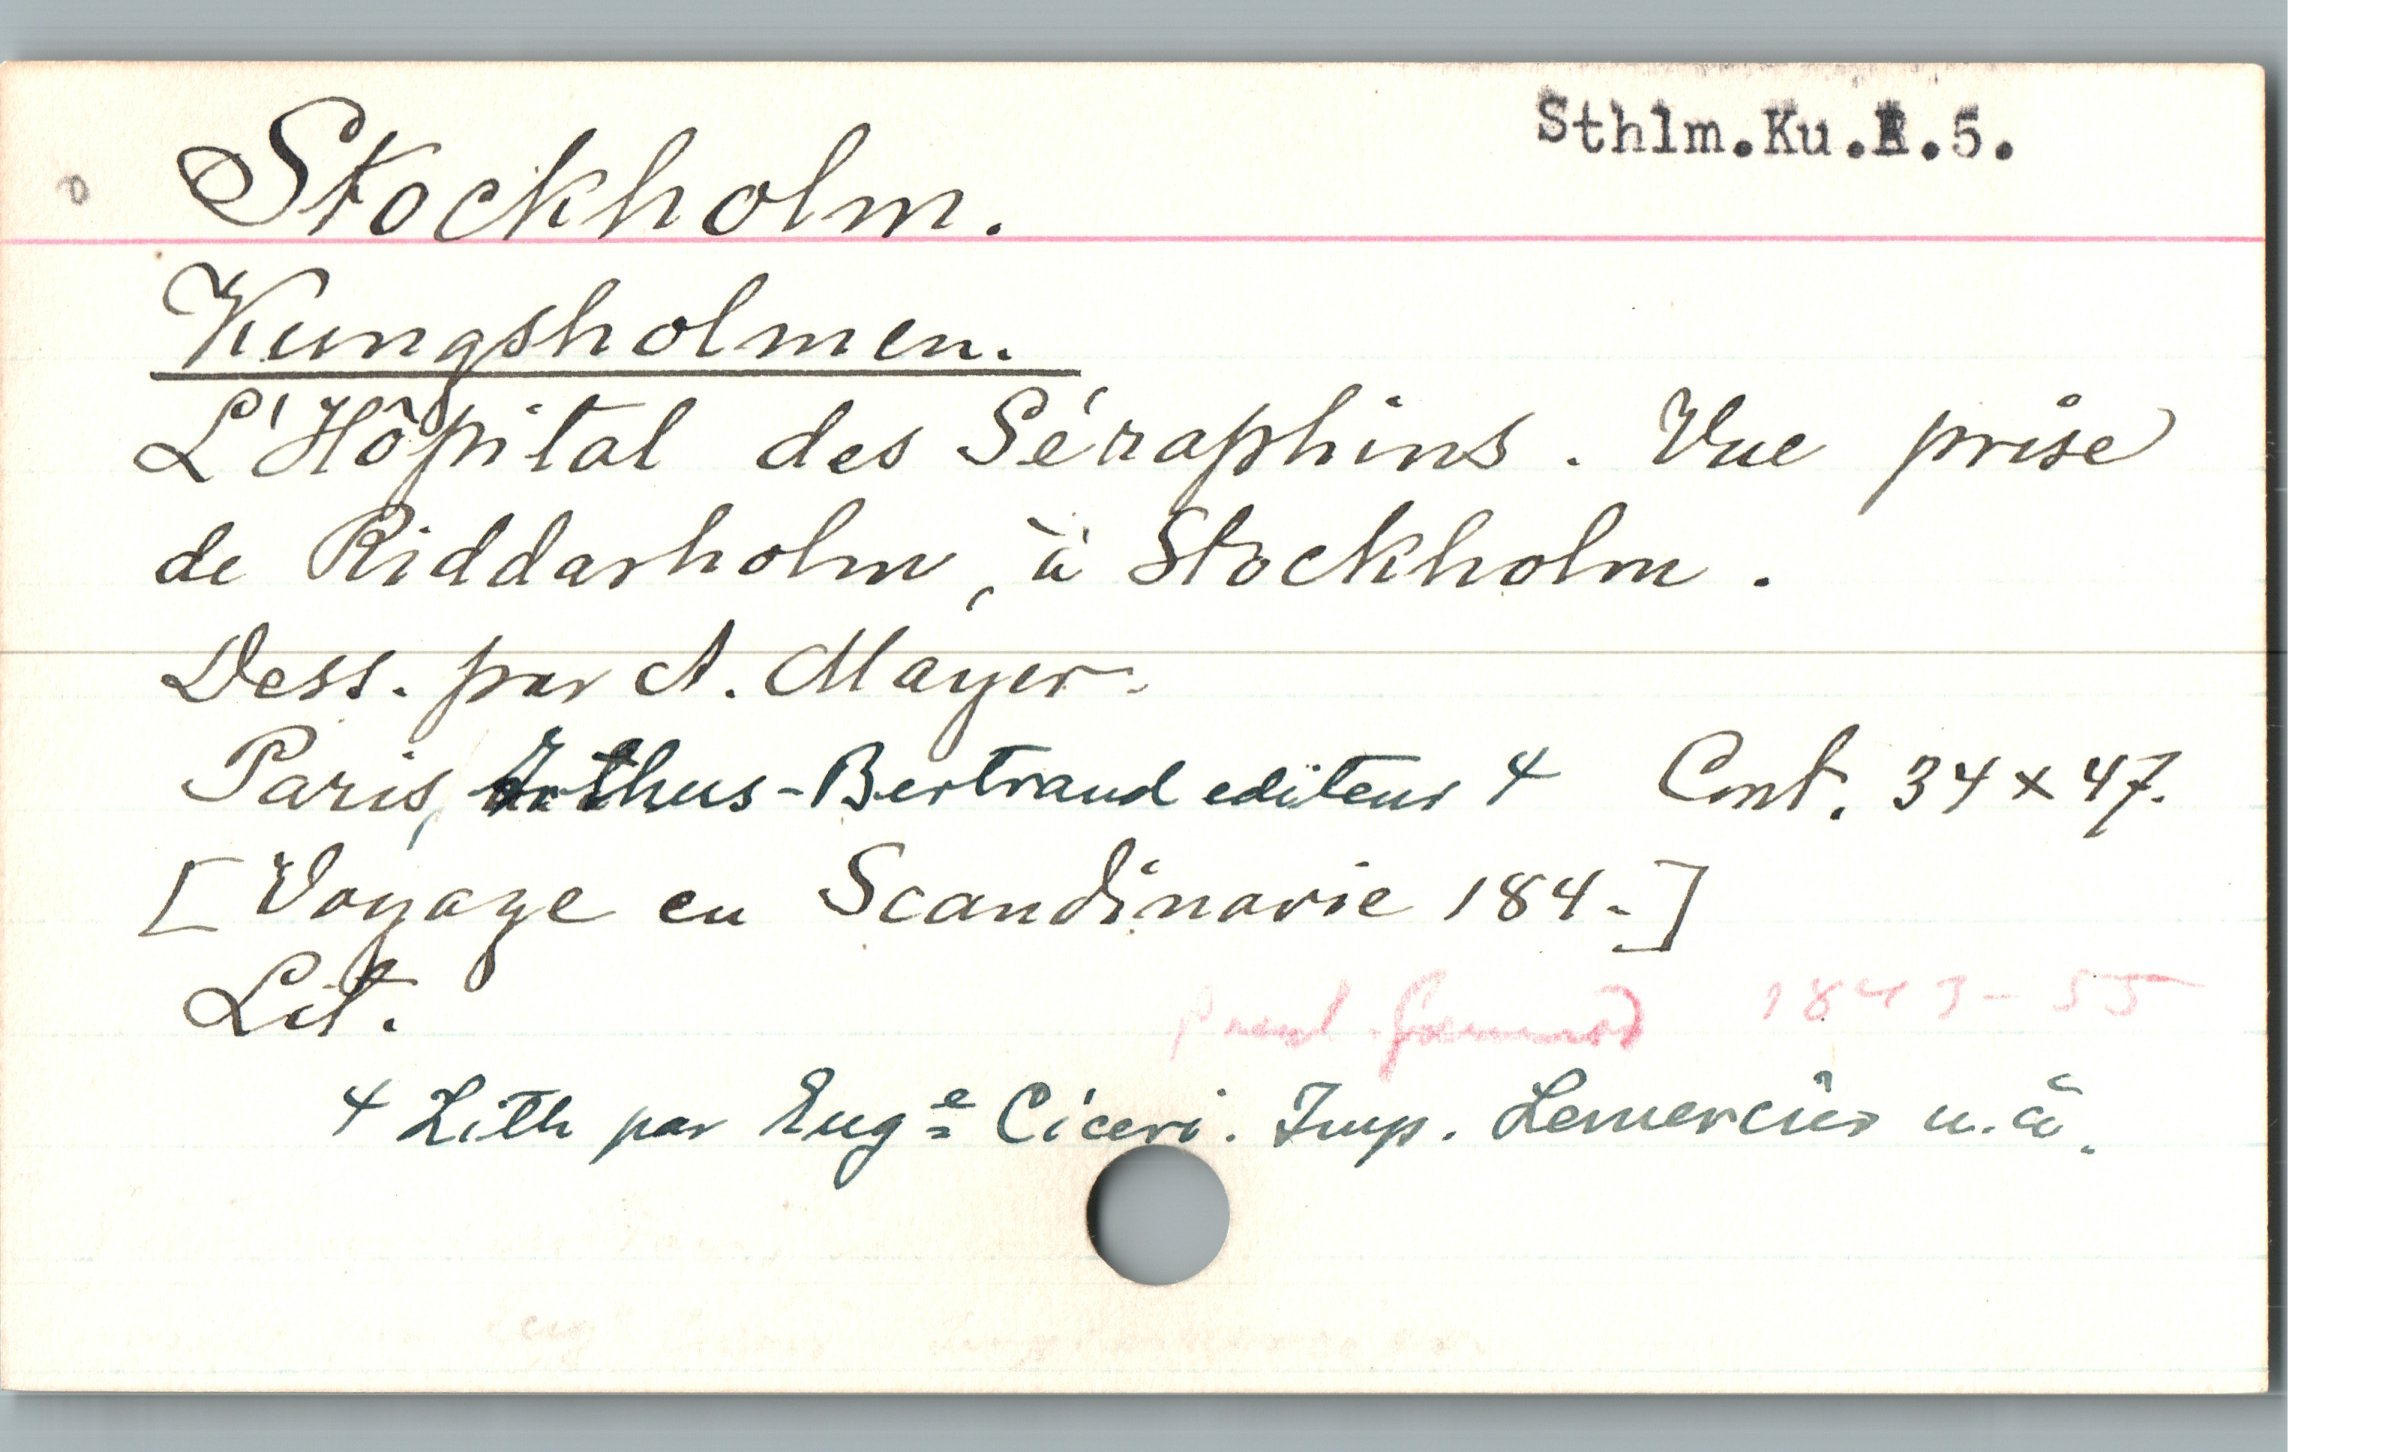 Stockholm.
Sthlm.Ku.R.5.
Kungsholmen.
L'Hôpital des Séraphins. Vue prise
de Riddarholm, à Stockholm.
Dess. par A. Mayer.
Paris, Arthus-Bertrand editeur 4 Cont. 34 x 47.
[Voyage en Scandinavie 184-]
Lit.
1843-55
4 Lith par Eugᵉ Ciceri. Imp. Lemercier u.å.